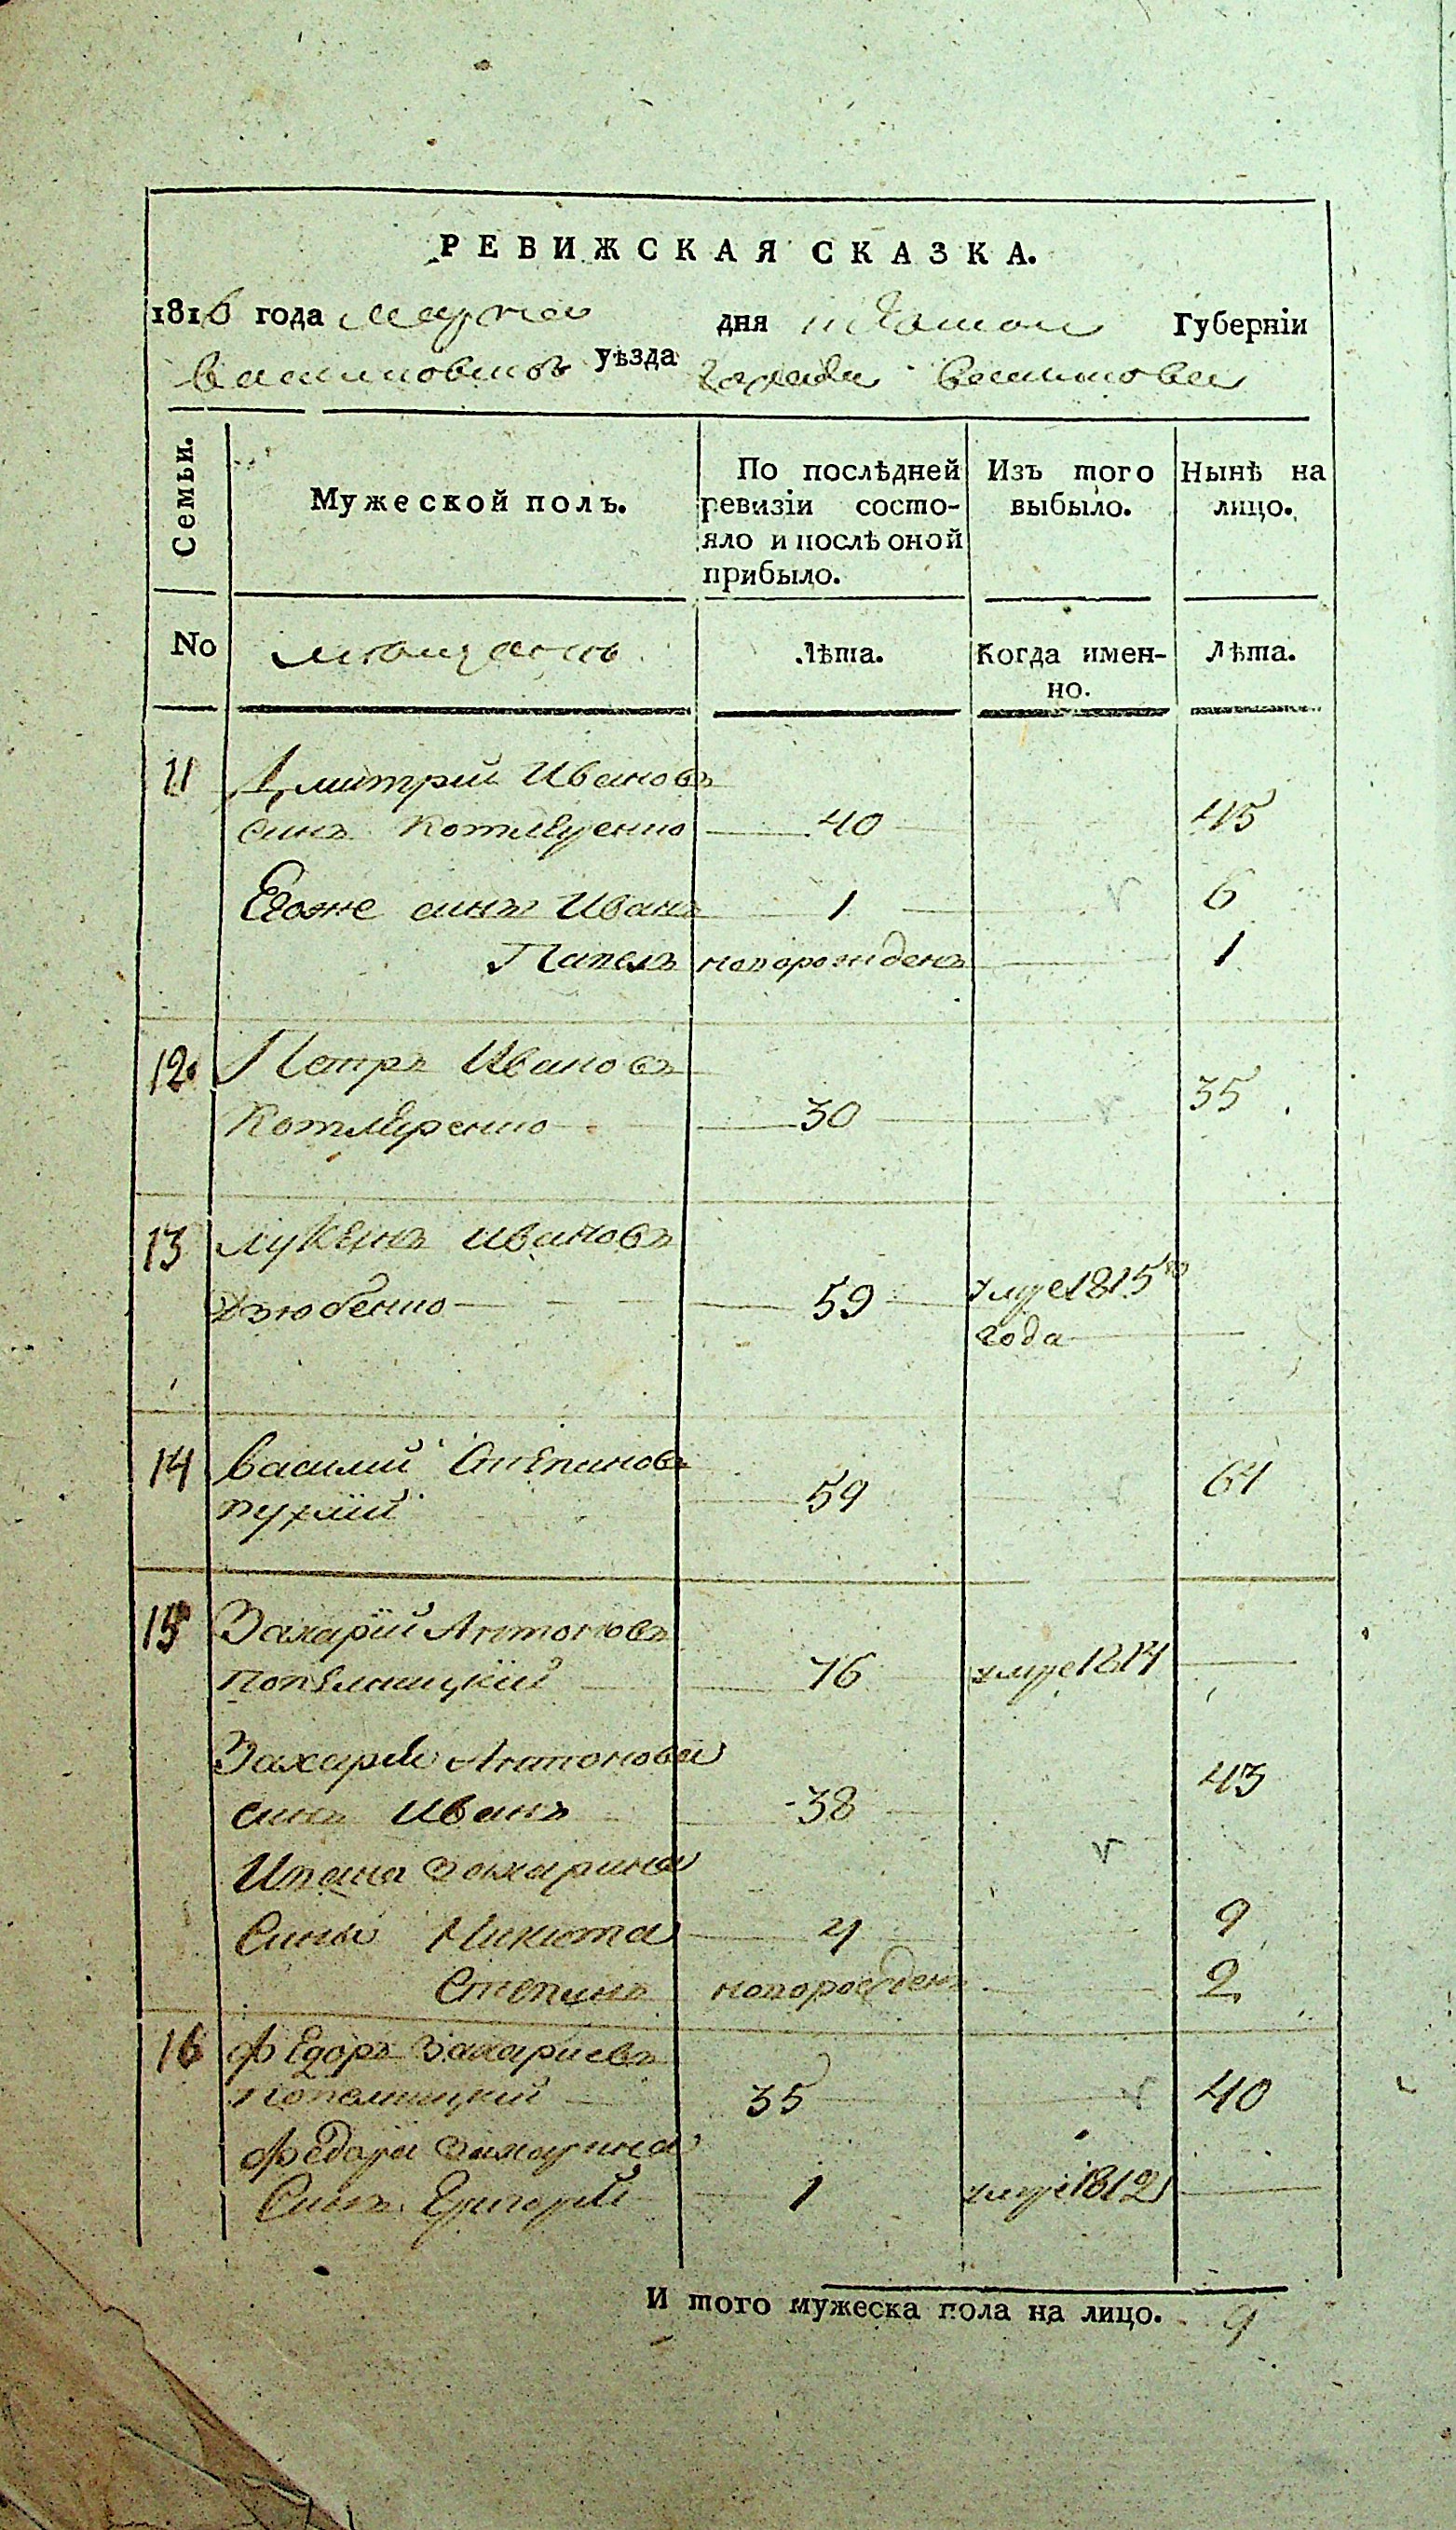 РЕВИЖСКАЯ СКАЗКА.
1816 года марта дня Киевской Губерніи
Васильковскаго уѣзда города Василькова
Семьи.
Мужеской полъ.
По послѣдней ревизіи состояло и послѣ оной прибыло.
Изъ того выбыло.
Нынѣ на лицо.
No мѣщанъ Лѣта. Когда именно. Лѣта.
11 Дмитрий Ивановъ
синъ Котляренко 40 45
Егоже синъ Иванъ 1 6
Павелъ новорожденъ 1
12 Петръ Ивановъ
Котляренко 30 35
13 Лукянъ Ивановъ
Дзюбенко 59 умре 1815го
года
14 Василий Степановъ
Пухлий 59 64
15 Захарий Антоновъ
Попелницкий 76 умре 1814
Захария Антонова
синъ Иванъ 38 43
Ивана Захарина
Сины Никита 4 9
Степанъ новорожденъ 2
16 Федоръ Захариевъ
Попелницкий 35 40
Федора Захарина
Синъ Григорий 1 умре 1812
И того мужеска пола на лицо. 9